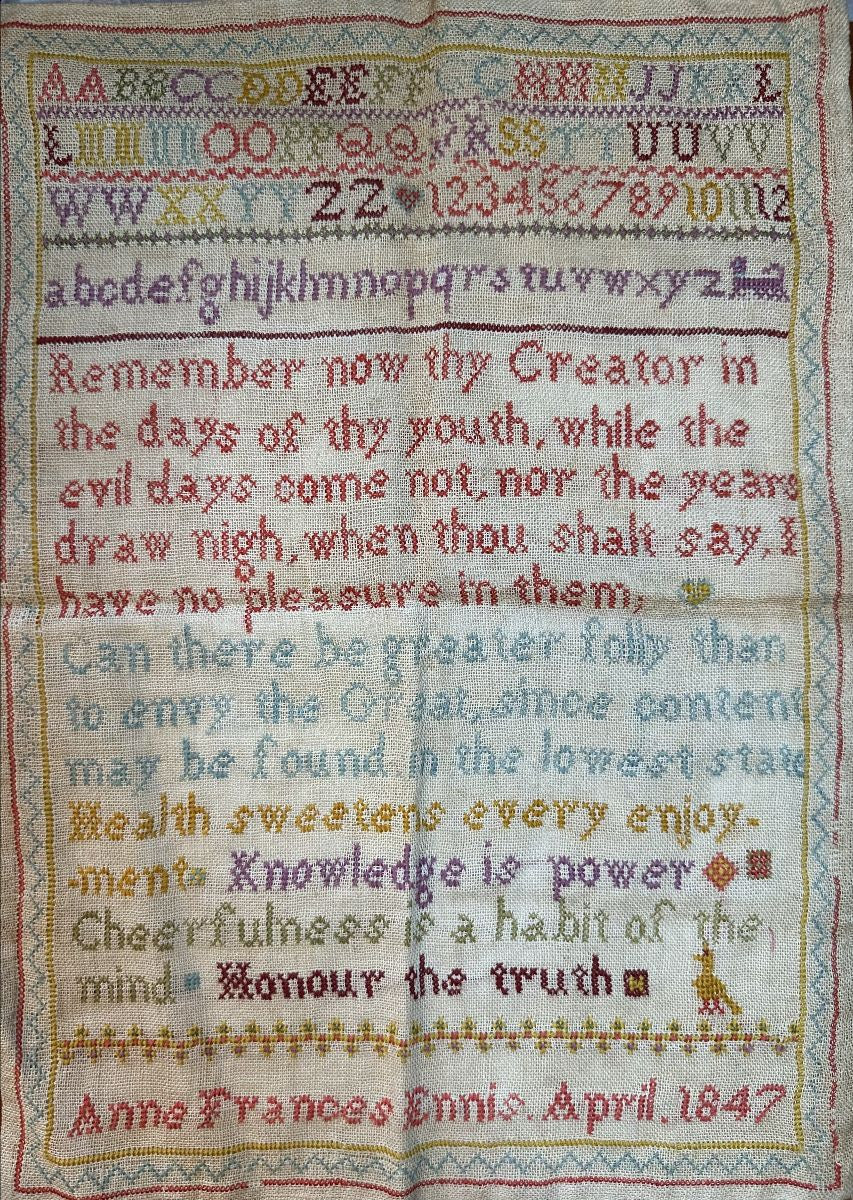 AABBCCDDEEFFGGHHIIJJKKL
LMMNNOOPPQQRRSSTTUUVV
WWXXYYZZ 123456789101112
abcdefghijklmnopqrstuvwxyz
Remember now thy Creator in
the days of thy youth, while the
evil days come not, nor the years
draw nigh, when thou shalt say, I
have no pleasure in them;
Can there be greater folly than
to envy the Great, since content
may be found in the lowest state
Health sweetens every enjoy-
-ment Knowledge is power
Cheerfulness is a habit of the
mind Honour the truth
Anne Frances Ennis. April. 1847